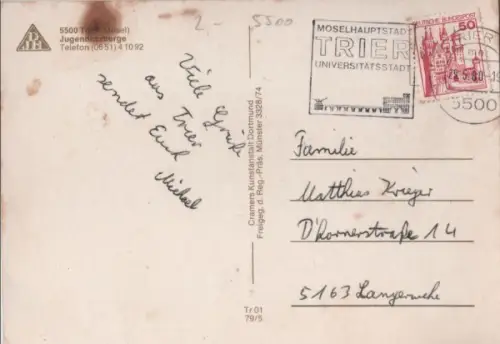 2.-
5500
5500 Trier (Mosel)
Jugendherberge
Telefon (06 51) 4 10 92
Viele Grüße
aus Trier
sendet Euch
Michael
Cramers Kunstanstalt Dortmund
Freigeg. d. Reg.-Präs. Münster 3328/74
Tr 01
79/5
MOSELHAUPTSTADT
TRIER
UNIVERSITÄTSSTADT
DEUTSCHE BUNDESPOST
50
TRIER
5500
Familie
Matthias Krieger
D'hornerstraße 14
5163 Langerwehe